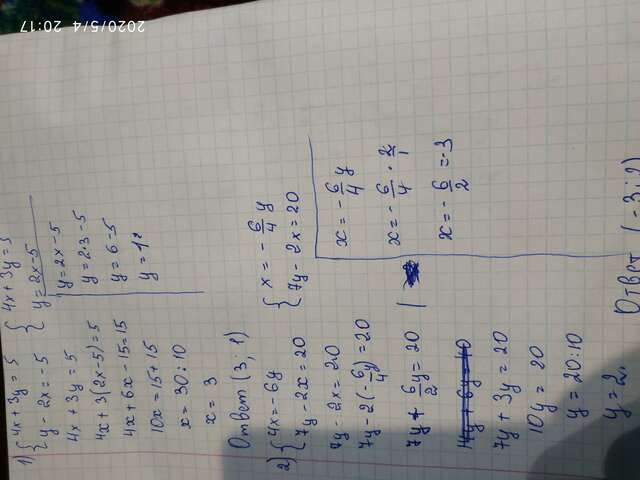 1) { 4x + 3y = 5
{ y - 2x = -5
{ 4x + 3y = 5
{ y = 2x - 5
4x + 3y = 5
4x + 3(2x - 5) = 5
4x + 6x - 15 = 15
10x = 15 + 15
x = 30 : 10
x = 3
y = 2x - 5
y = 2·3 - 5
y = 6 - 5
y = 1
Ответ (3; 1)
2) { 4x = -6y
{ 7y - 2x = 20
{ x = -6/4 y
{ 7y - 2x = 20
7y - 2x = 20
7y - 2(-6/4 y) = 20
7y + 6/2 y = 20
14y + 6y = 40
7y + 3y = 20
10y = 20
y = 20 : 10
y = 2.
x = -6/4 y
x = -6/4 · 2/1
x = -6/2 = -3
Ответ (-3; 2)
2020/5/4 20:17